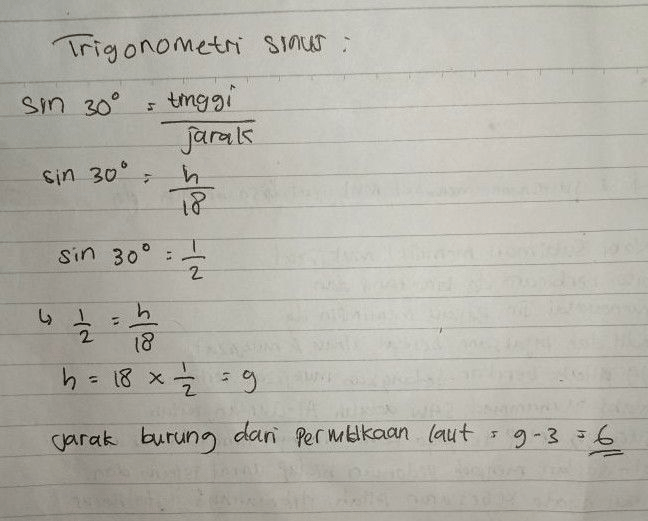 Trigonometri sinus :
sin 30° = tinggi / jarak
sin 30° = h / 18
sin 30° = 1 / 2
↳ 1 / 2 = h / 18
h = 18 × 1 / 2 = 9
Jarak burung dari permukaan laut = 9 - 3 = 6